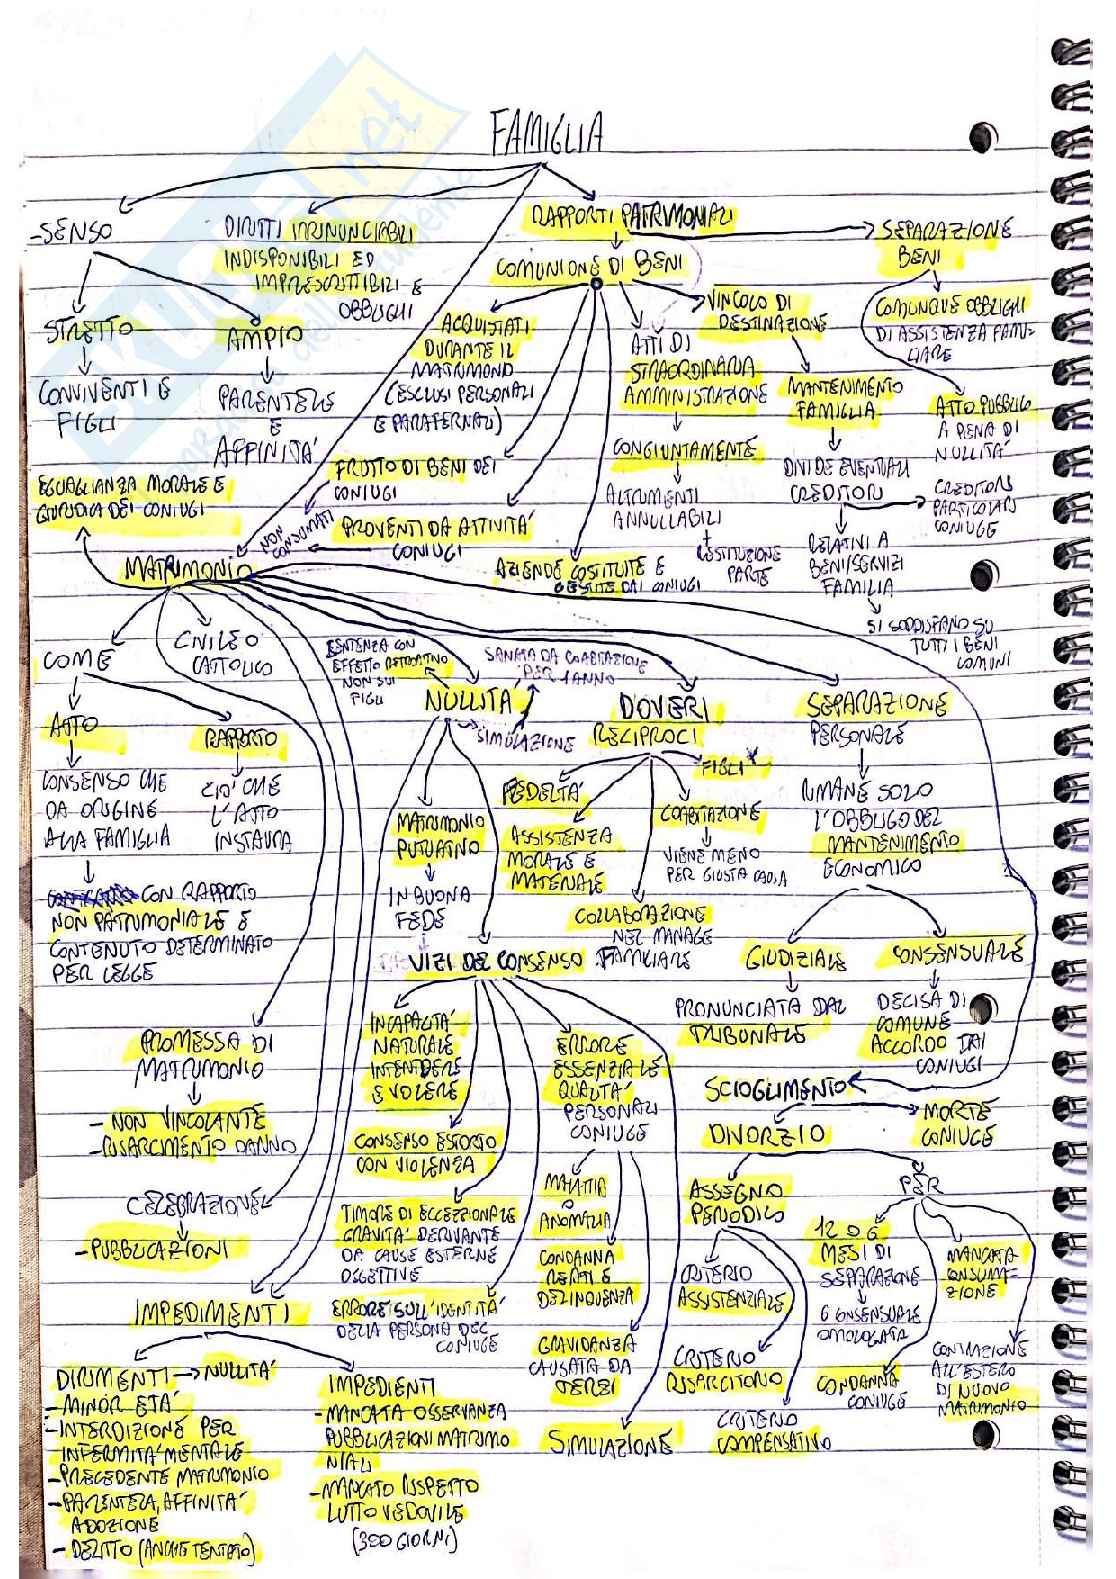 FAMIGLIA
-SENSO
STRETTO
CONVIVENTI E
FIGLI
AMPIO
PARENTELE
E
AFFINITÀ
DIRITTI IRRINUNCIABILI
INDISPONIBILI ED
IMPRESCRITTIBILI E
OBBLIGHI
RAPPORTI PATRIMONIALI
COMUNIONE DI BENI
ACQUISTATI
DURANTE IL
MATRIMONIO
(ESCLUSI PERSONALI
E PARAFERNALI)
FRUTTO DI BENI DEI
CONIUGI
PROVENTI DA ATTIVITÀ
CONIUGI
NON
CONSUMATI
AZIENDE COSTITUITE E
GESTITE DAI CONIUGI
ATTI DI
STRAORDINARIA
AMMINISTRAZIONE
CONGIUNTAMENTE
ALTRIMENTI
ANNULLABILI
+
RESTITUZIONE
PARTE
VINCOLO DI
DESTINAZIONE
MANTENIMENTO
FAMIGLIA
DIVIDE EVENTUALI
CREDITORI
CREDITORI
PARTICOLARI
CONIUGE
RELATIVI A
BENI/SERVIZI
FAMIGLIA
SI SODDISFANO SU
TUTTI I BENI
COMUNI
SEPARAZIONE
BENI
COMUNQUE OBBLIGHI
DI ASSISTENZA FAMI-
LIARE
ATTO PUBBLICO
A PENA DI
NULLITÀ
EGUAGLIANZA MORALE E
GIURIDICA DEI CONIUGI
MATRIMONIO
COME
ATTO
CONSENSO CHE
DA ORIGINE
ALLA FAMIGLIA
CON RAPPORTO
NON PATRIMONIALE E
CONTENUTO DETERMINATO
PER LEGGE
RAPPORTO
CIO' CHE
L'ATTO
INSTAURA
CIVILE O
CATTOLICO
SENTENZA CON
EFFETTO RETROATTIVO
NON SUI
FIGLI
SANATA DA COABITAZIONE
PER 1 ANNO
NULLITÀ
SIMULAZIONE
MATRIMONIO
PUTATIVO
IN BUONA
FEDE
VIZI DEL CONSENSO
INCAPACITÀ
NATURALE
INTENDERE
E VOLERE
CONSENSO ESTORTO
CON VIOLENZA
TIMORE DI ECCEZIONALE
GRAVITÀ DERIVANTE
DA CAUSE ESTERNE
OGGETTIVE
ERRORE SULL'IDENTITÀ
DELLA PERSONA DEL
CONIUGE
ERRORE
ESSENZIALE
QUALITÀ
PERSONALI
CONIUGE
MALATTIA
O
ANOMALIA
CONDANNA
REATI E
DELINQUENZA
GRAVIDANZA
CAUSATA DA
TERZI
SIMULAZIONE
DOVERI
RECIPROCI
FEDELTÀ
ASSISTENZA
MORALE E
MATERIALE
COLLABORAZIONE
NEL MANAGE
FAMILIARE
COABITAZIONE
VIENE MENO
PER GIUSTA CAUSA
FIGLI
SEPARAZIONE
PERSONALE
RIMANE SOLO
L'OBBLIGO DEL
MANTENIMENTO
ECONOMICO
GIUDIZIALE
PRONUNCIATA DAL
TRIBUNALE
CONSENSUALE
DECISA DI
COMUNE
ACCORDO DAI
CONIUGI
SCIOGLIMENTO
MORTE
CONIUGE
DIVORZIO
ASSEGNO
PERIODICO
CRITERIO
ASSISTENZIALE
CRITERIO
RISARCITORIO
CRITERIO
COMPENSATIVO
PER
12 O 6
MESI DI
SEPARAZIONE
6 CONSENSUALE
OMOLOGATA
CONDANNA
CONIUGE
MANCATA
CONSUMA-
ZIONE
CONTRAZIONE
ALL'ESTERO
DI NUOVO
MATRIMONIO
PROMESSA DI
MATRIMONIO
- NON VINCOLANTE
- RISARCIMENTO DANNO
CELEBRAZIONE
- PUBBLICAZIONI
IMPEDIMENTI
DIRIMENTI → NULLITÀ
- MINOR ETÀ
- INTERDIZIONE PER
INFERMITÀ MENTALE
- PRECEDENTE MATRIMONIO
- PARENTELA, AFFINITÀ
ADOZIONE
- DELITTO (ANCHE TENTATO)
IMPEDIENTI
- MANCATA OSSERVANZA
PUBBLICAZIONI MATRIMO
NIALI
- MANCATO RISPETTO
LUTTO VEDOVILE
(300 GIORNI)